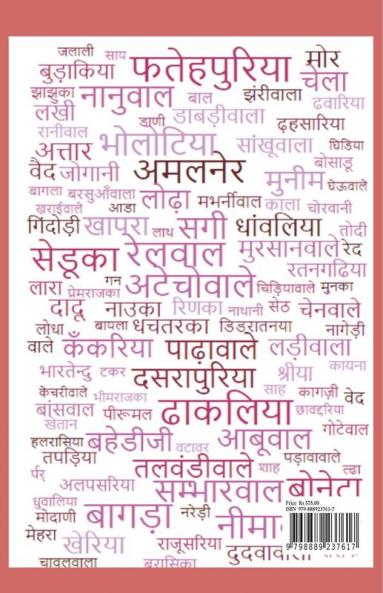 जलाली साय फतेहपुरिया मोर
बुड़ाकिया चेला
झाझुका नानुवाल बाल झंरीवाला
लखी डाबड़ीवाला ढवारिया
रानीवाल डाणी ढ़हसारिया
अत्तार भोलोटिया सांखूवाला घिडिया
वैद जोगानी अमलनेर मुनीम बोसाडू
घेऊवाले
बागला बरसुआँवाला लोढ़ा मभर्नीवाल काला चोरवानी
खराईवाले आडा
गिंदोड़ी खापरा लाथ सगी धांवलिया तोदी
सेडूका रेलवाल मुरसानवाले रेद
रतनगढिया
लारा प्रेमराजका गन अटेचोवाले चिड़ियावाले मुनका
दादू नाउका रिणका नाथानी सेठ चेनवाले
लोधा बायला धचतरका डिडरातनया नागेड़ी
वाले कँकरिया पाढ़ावाले लड़ीवाला
भारतेन्दु टकर दसरापुरिया श्रीया कायना
केचरीवाले भीमराजका साह कागज़ी वेद
बांसवाल पीरूमल ढाकलिया छावछरिया
खेतान गोटेवाल
हलरासिया बहेडीजी वटावर आबूवाल
तपड़िया पड़ावावाले
तलवंडीवाले शाह
अलपसरिया सम्भारवाल बोनेटा
धुवालिया
मोदाणी बागड़ा नरेड़ी
मेहरा खेरिया राजूसरिया
चावलवाला बरासिका
Price Rs 575.00
ISBN 979-888923761-7
9 798889 237617